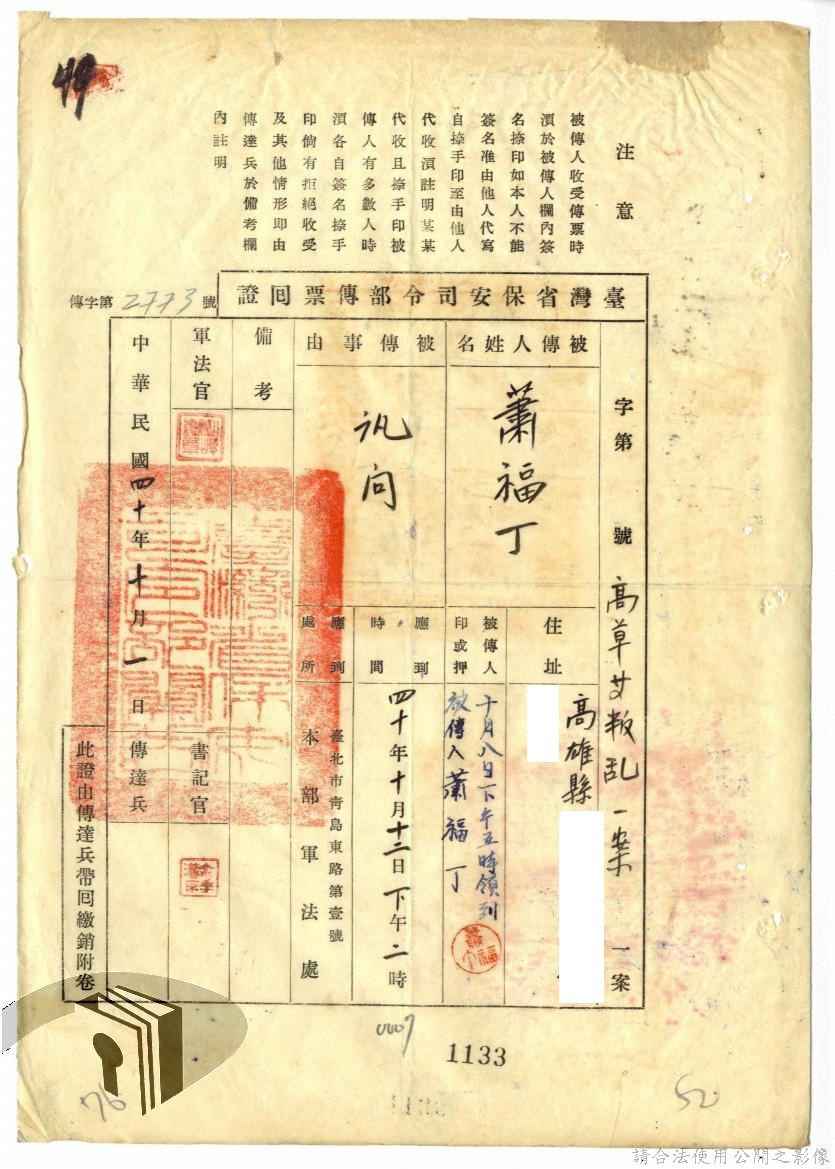 49
注意
被傳人收受傳票時
須於被傳人欄內簽
名捺印如本人不能
簽名准由他人代寫
自捺手印至由他人
代收須註明某某
代收且捺手印被
傳人有多數人時
須各自簽名捺手
印倘有拒絕收受
及其他情形即由
傳達兵於備考欄
內註明
臺灣省保安司令部傳票囘證
傳字第2773號
字第 號 高草等叛乱一案 一案
被傳人姓名
蕭福丁
住址
高雄縣
被傳人
印或押
十月八日下午五時領到
被傳人蕭福丁
被傳事由
訊問
應到
時間
四十年十月十二日下午二時
應到
處所
臺北市靑島東路第壹號
本部軍法處
備考
軍法官
書記官
中華民國四十年十月一日
傳達兵
此證由傳達兵帶囘繳銷附卷
0007
1133
76
52
請合法使用公開之影像